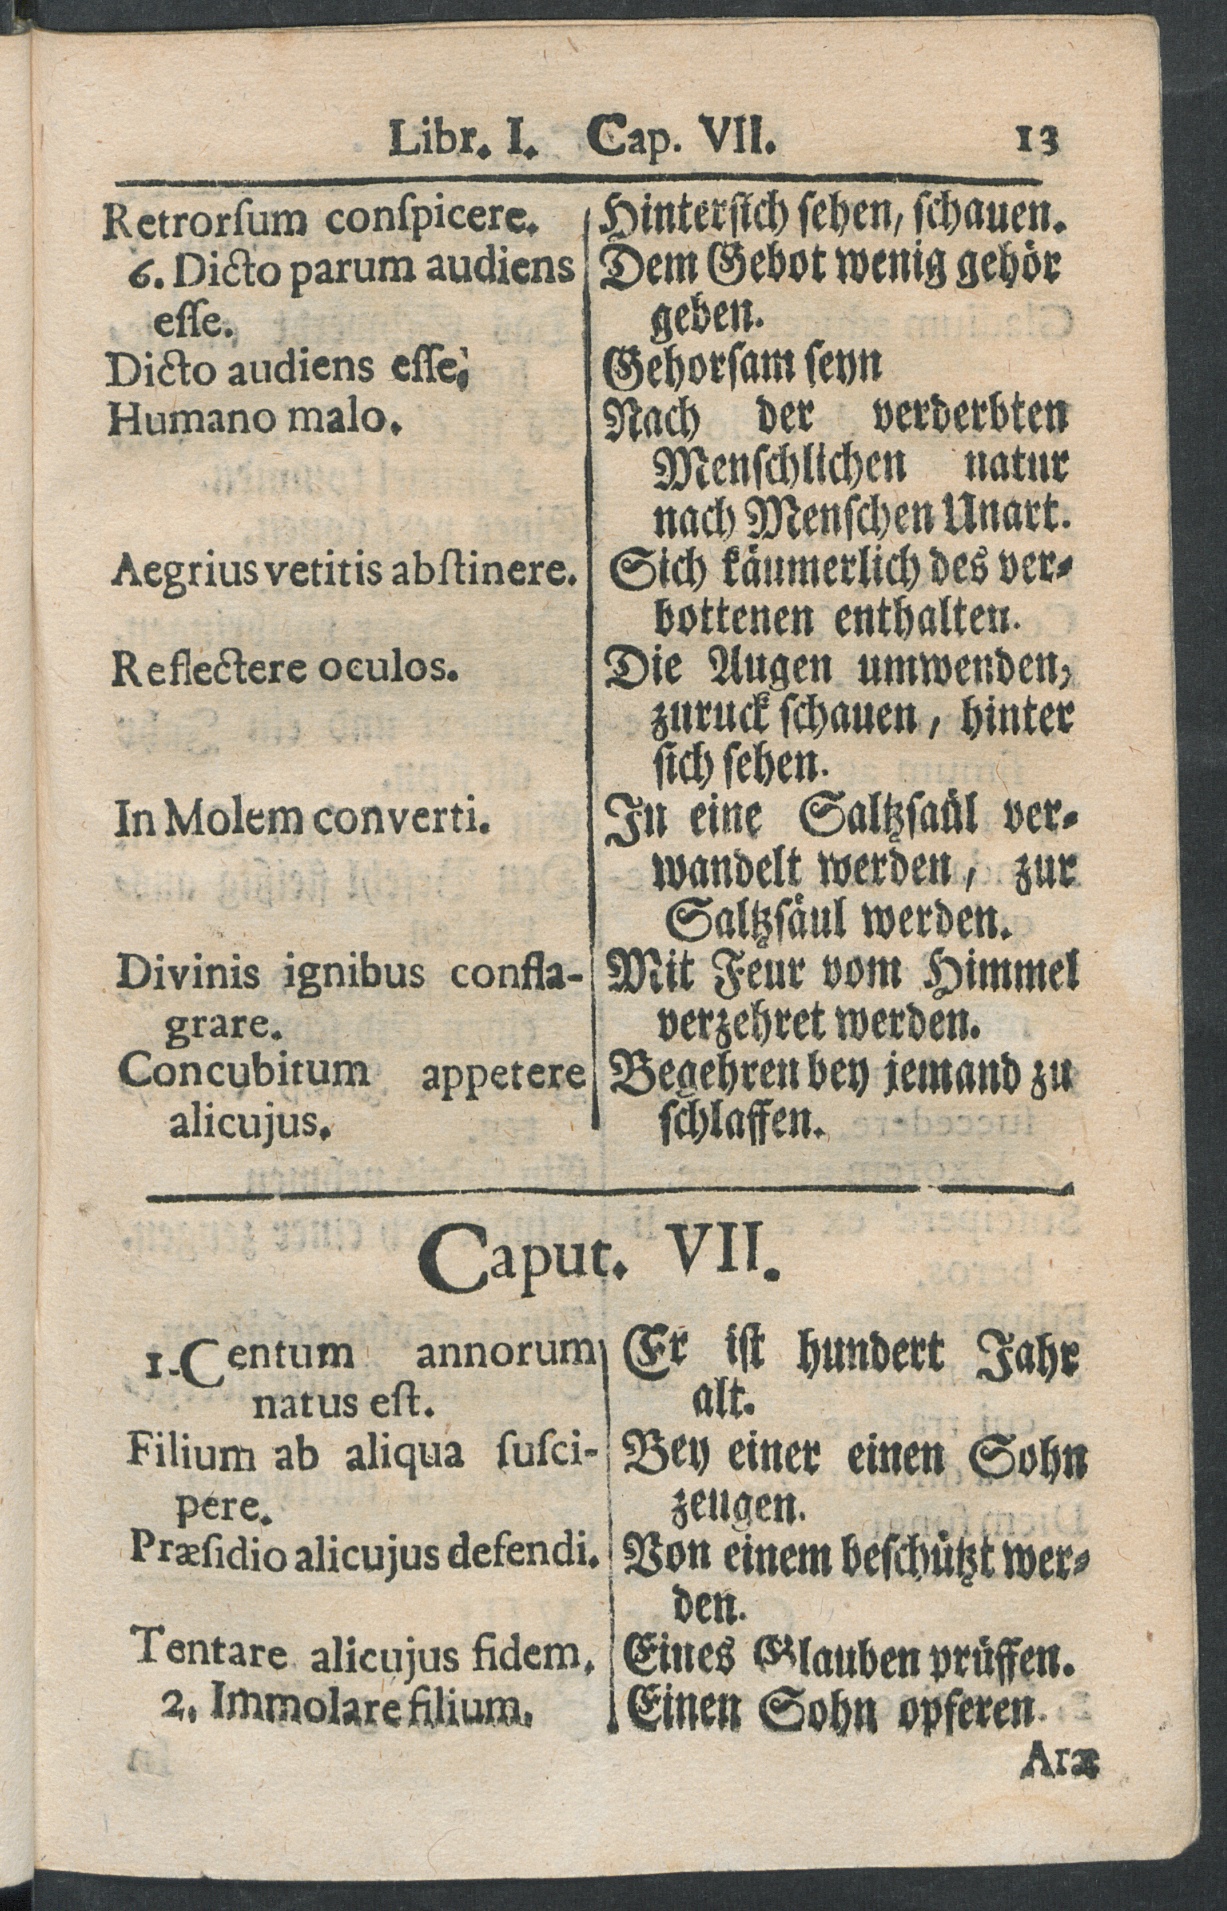 Libr. I. Cap. VII. 13
Retrorſum conſpicere.
6. Dicto parum audiens
eſſe.
Dicto audiens eſſe;
Humano malo.
Aegrius vetitis abſtinere.
Reflectere oculos.
In Molem converti.
Divinis ignibus confla-
grare.
Concubitum appetere
alicujus.
Hinterſich ſehen, ſchauen.
Dem Gebot wenig gehör
geben.
Gehorſam ſeyn
Nach der verderbten
Menſchlichen natur
nach Menſchen Unart.
Sich käumerlich des ver-
bottenen enthalten.
Die Augen umwenden,
zuruck ſchauen, hinter
ſich ſehen.
In eine Saltzſaül ver-
wandelt werden, zur
Saltzſäul werden.
Mit Feur vom Himmel
verzehret werden.
Begehren bey jemand zu
ſchlaffen.
Caput. VII.
1. Centum annorum
natus eſt.
Filium ab aliqua ſuſci-
pere.
Præſidio alicujus defendi.
Tentare alicujus fidem.
2. Immolare filium.
Er iſt hundert Jahr
alt.
Bey einer einen Sohn
zeugen.
Von einem beſchützt wer-
den.
Eines Glauben prüffen.
Einen Sohn opferen.
Aræ